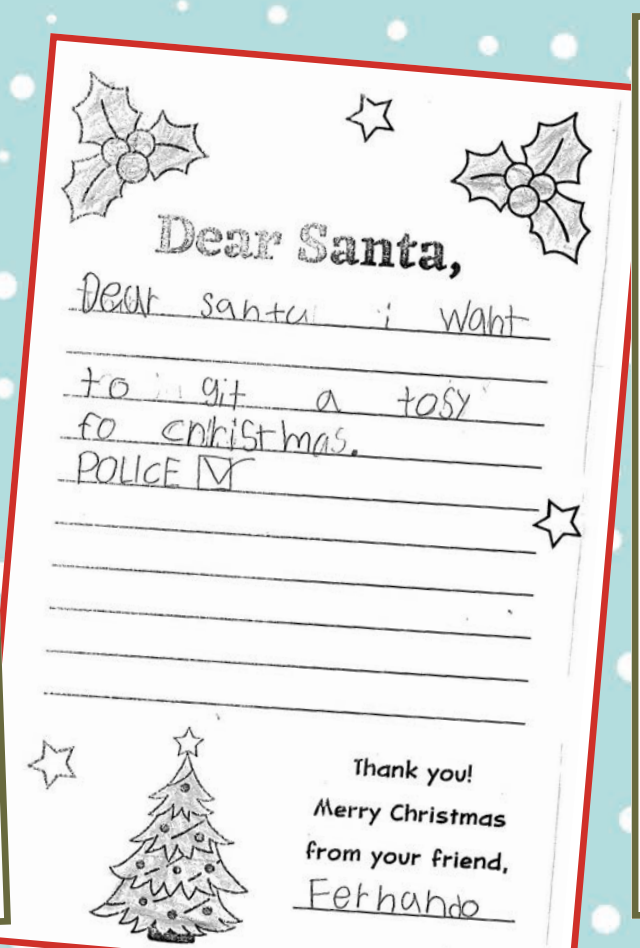 Dear Santa,
Dear santa i want
to git a tosy
fo cnhistmas.
POLICE
Thank you!
Merry Christmas
from your friend,
Fernando